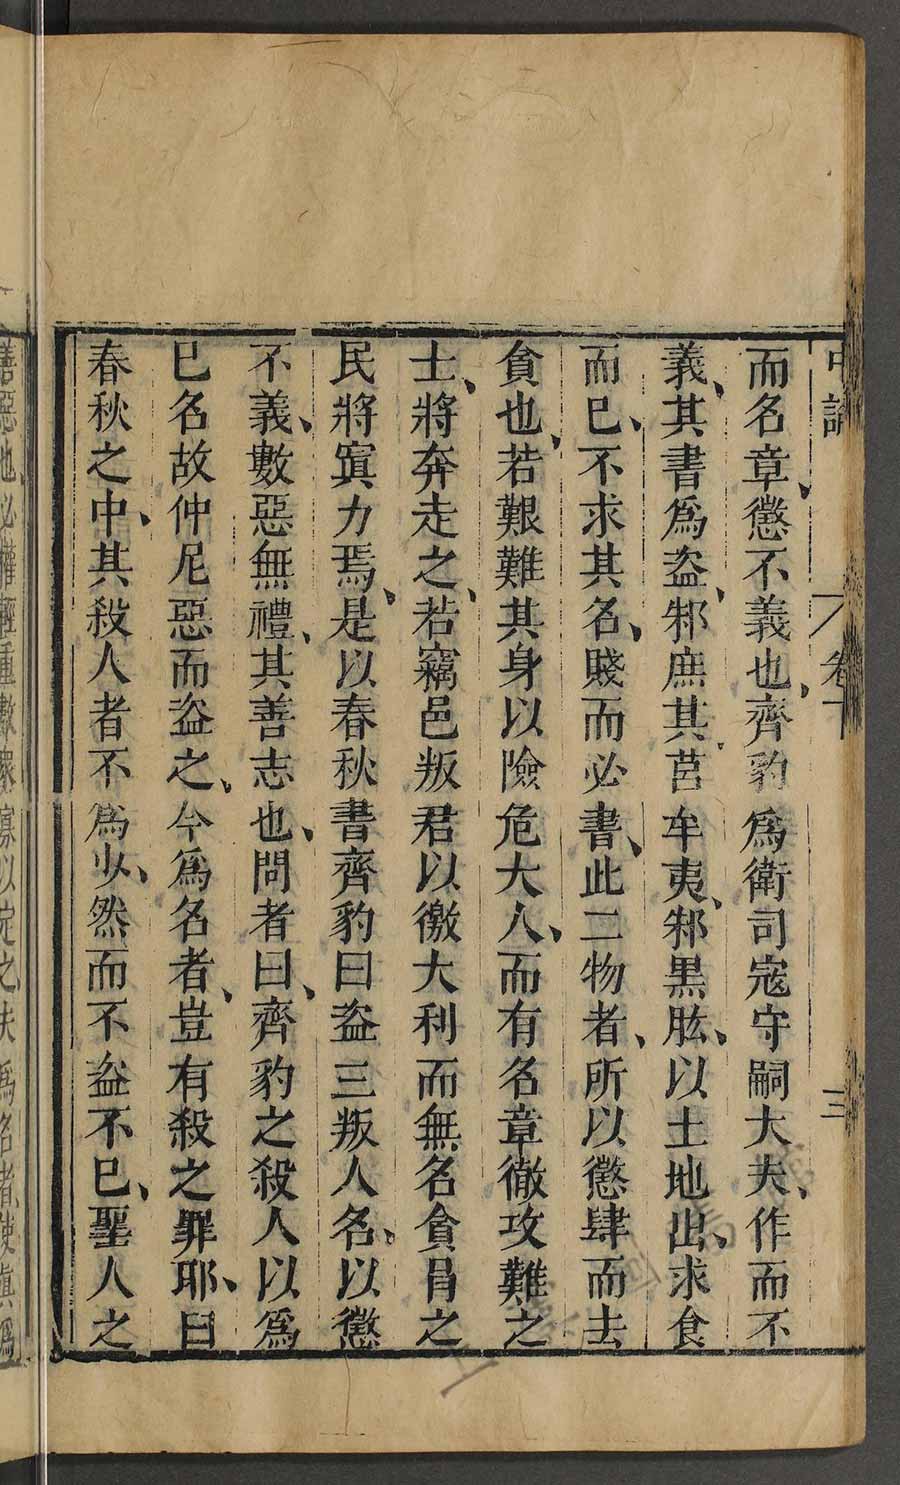 中論
卷下
三
而名章懲不義也、齊豹爲衛司寇守嗣大夫、作而不
義、其書爲盗、邾庶其、莒牟夷、邾黒肱、以土地出、求食
而已、不求其名、賤而必書、此二物者、所以懲肆而去
貪也、若艱難其身以險危大人、而有名章徹攻難之
士、將奔走之、若竊邑叛君以徼大利而無名貪冒之
民將寘力焉、是以春秋書齊豹曰盗三叛人名、以懲
不義、數惡無禮、其善志也、問者曰、齊豹之殺人以爲
已名故仲尼惡而盗之、今爲名者、豈有殺之罪耶、曰
春秋之中、其殺人者不爲少、然而不盗不已、聖人之
善惡也、必權輕重數衆寡以定之、夫爲名者、使眞爲